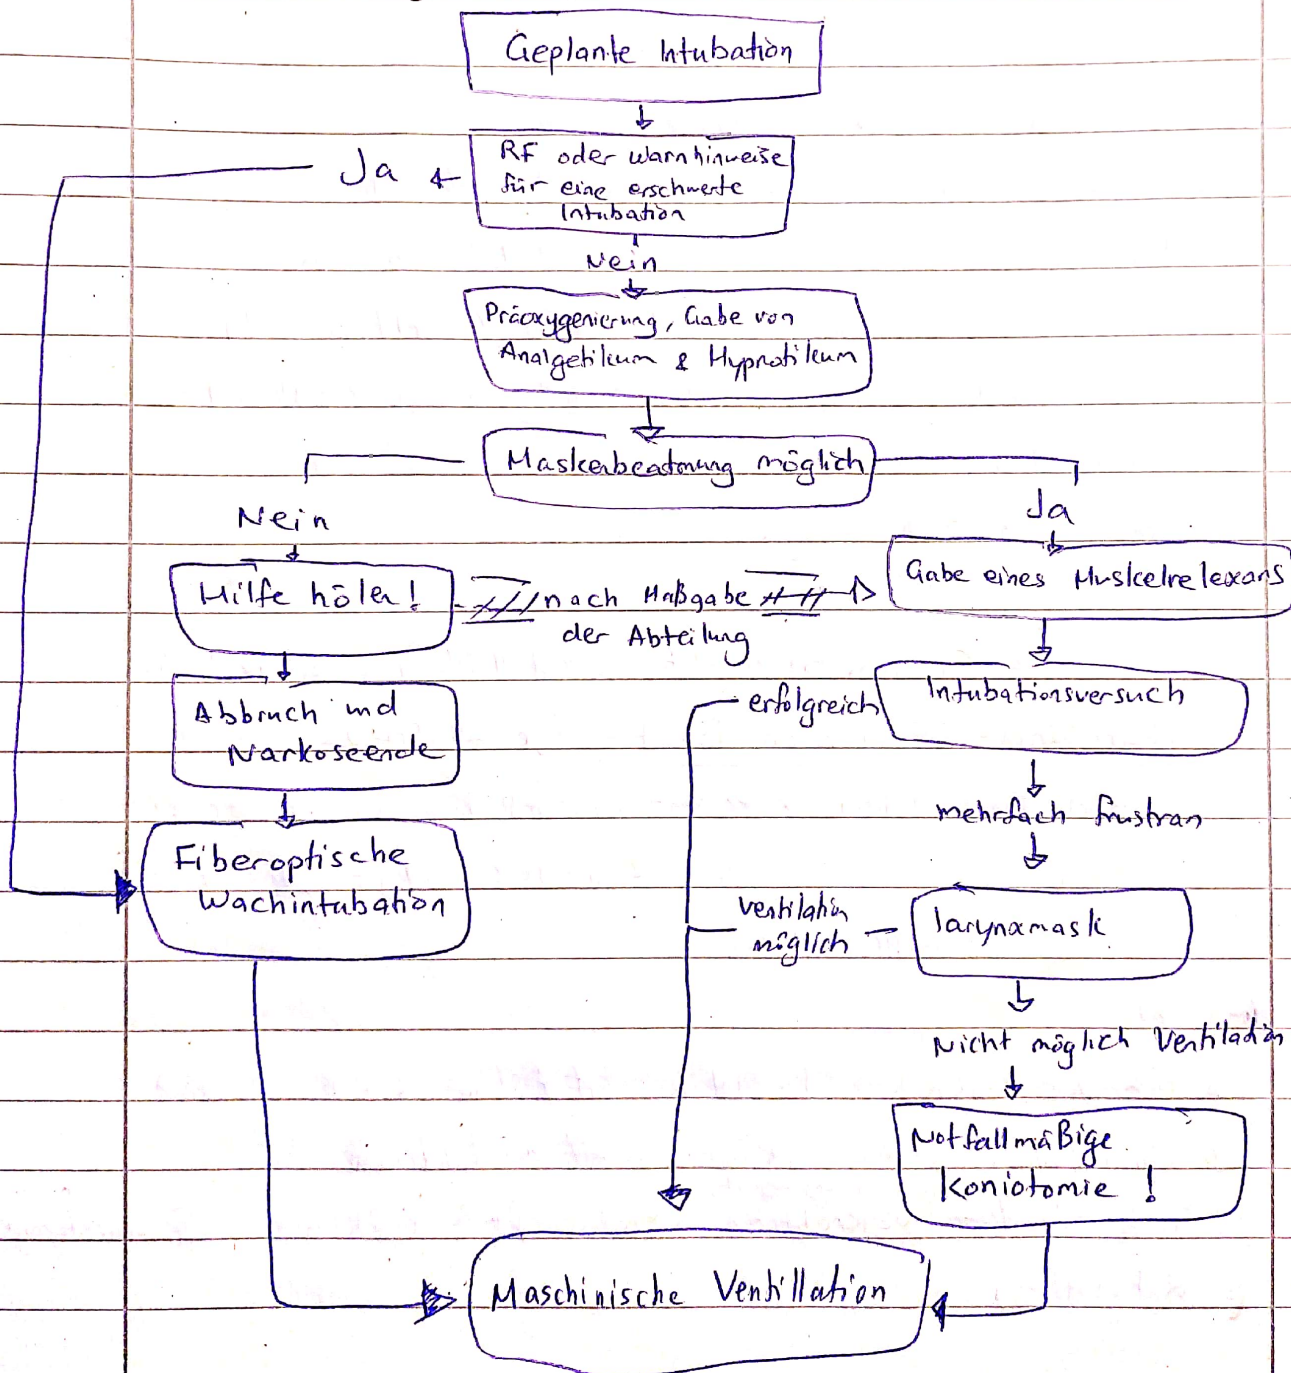 Geplante Intubation
RF oder Warnhinweise
für eine erschwerte
Intubation
Ja
Nein
Präoxygenierung, Gabe von
Analgetikum & Hypnotikum
Maskenbeatmung möglich
Nein
Ja
Hilfe holen!
nach Maßgabe
der Abteilung
Gabe eines Muskelrelexans
Abbruch und
Narkoseende
erfolgreich
Intubationsversuch
mehrfach frustran
Fiberoptische
Wachintubation
Ventilation
möglich
larynxmask
Nicht möglich Ventilation
Notfallmäßige
Koniotomie !
Maschinische Ventillation